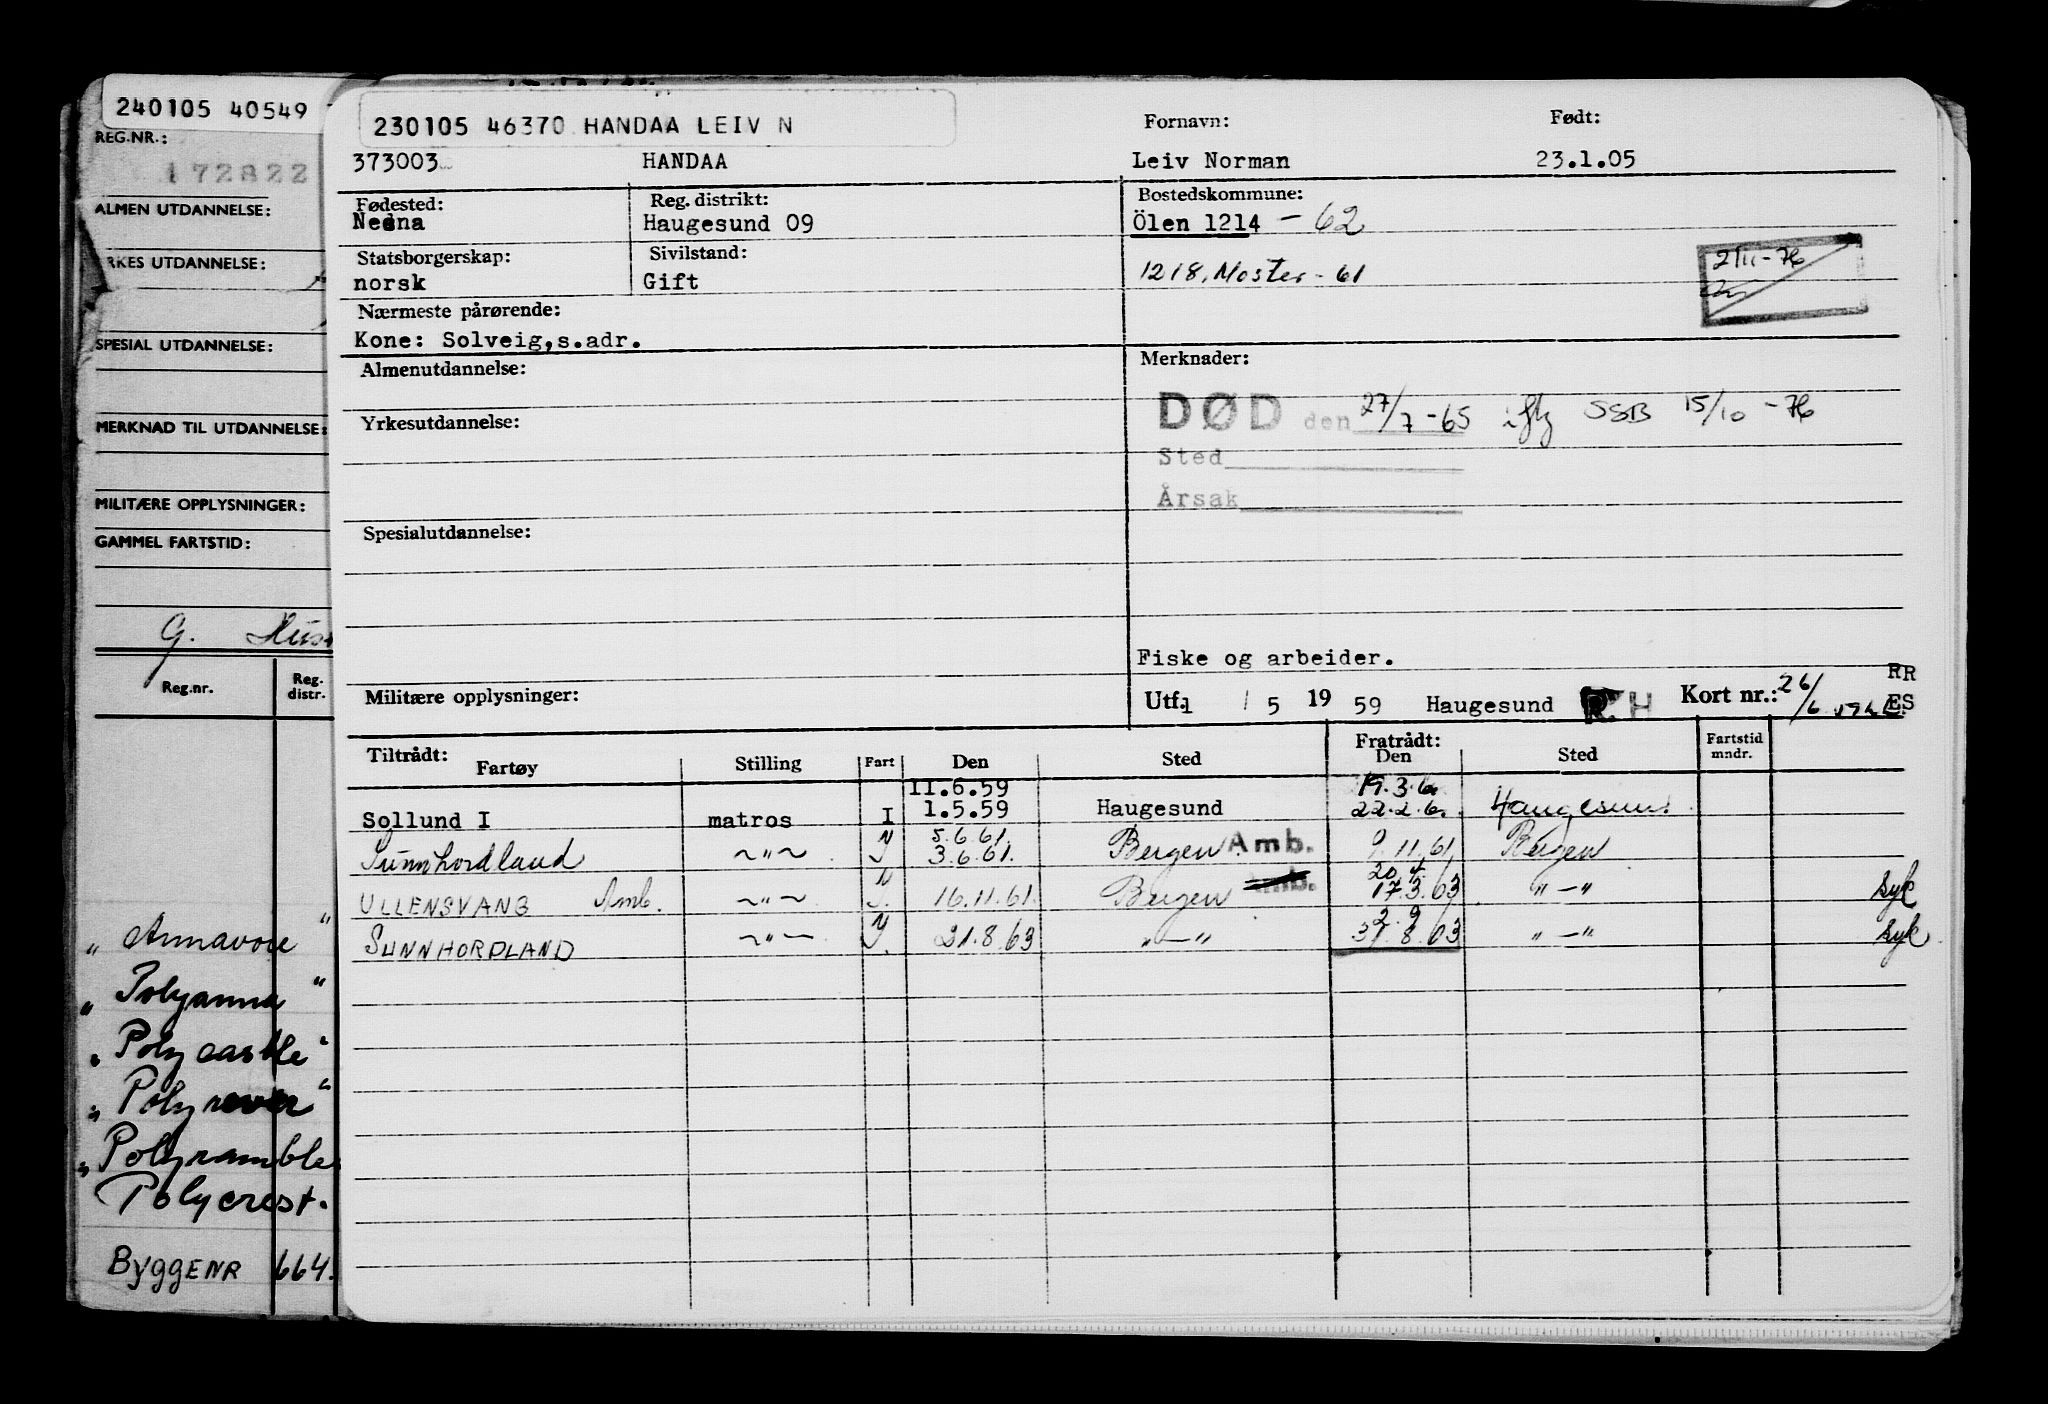 240105 40549
REG.NR.:
172822
ALMEN UTDANNELSE:
RKES UTDANNELSE:
SPESIAL UTDANNELSE:
MERKNAD TIL UTDANNELSE:
MILITÆRE OPPLYSNINGER:
GAMMEL FARTSTID:
G.
Reg.nr. Reg. distr.
" Annavore "
" Polyanna "
" Polycastle "
" Polyrover "
" Polyramble
Polycrest.
ByggeNR 664.
230105 46370 HANDAA LEIV N
Fornavn: Født:
373003 HANDAA Leiv Norman 23.1.05
Fødested: Reg. distrikt: Bostedskommune:
Nedna Haugesund 09 Ölen 1214 - 62
Statsborgerskap: Sivilstand:
norsk Gift 1218. Moster - 61
2/11-76
Nærmeste pårørende:
Kone: Solveig,s.adr.
Almenutdannelse: Merknader:
DØD den 27/7-65 iflg SSB 15/10-76
Yrkesutdannelse:
Sted
Årsak
Spesialutdannelse:
Fiske og arbeider.
Militære opplysninger: Utf. 1 / 5 19 59 Haugesund H Kort nr.: 26/6
RR
ES
Tiltrådt: Fratrådt:
Fartøy Stilling Fart Den Sted Den Sted Fartstid mndr.
11.6.59 19.3.6
Sollund I matros I 1.5.59 Haugesund 22.2.6 Haugesund
5.6.61.
Sunnhordland ~"~ 3.6.61. Bergen Amb. 9.11.61 Bergen
20.4.
ULLENSVANG Amb. ~"~ 16.11.61. Bergen Amb. 17.3.63 "-" Syk
2.9
SUNNHORDLAND ~"~ 21.8.63 "-" 31.8.63 "-" Syk